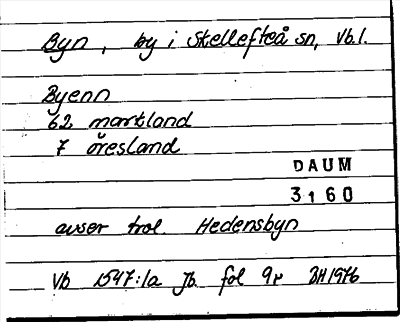 Byn, by i Skellefteå sn, Vb.l.
Byenn
62 markland
7 öresland
DAUM
3160
avser trol. Hedensbyn
Vb 1547:1a Jb fol 9r BH 1976